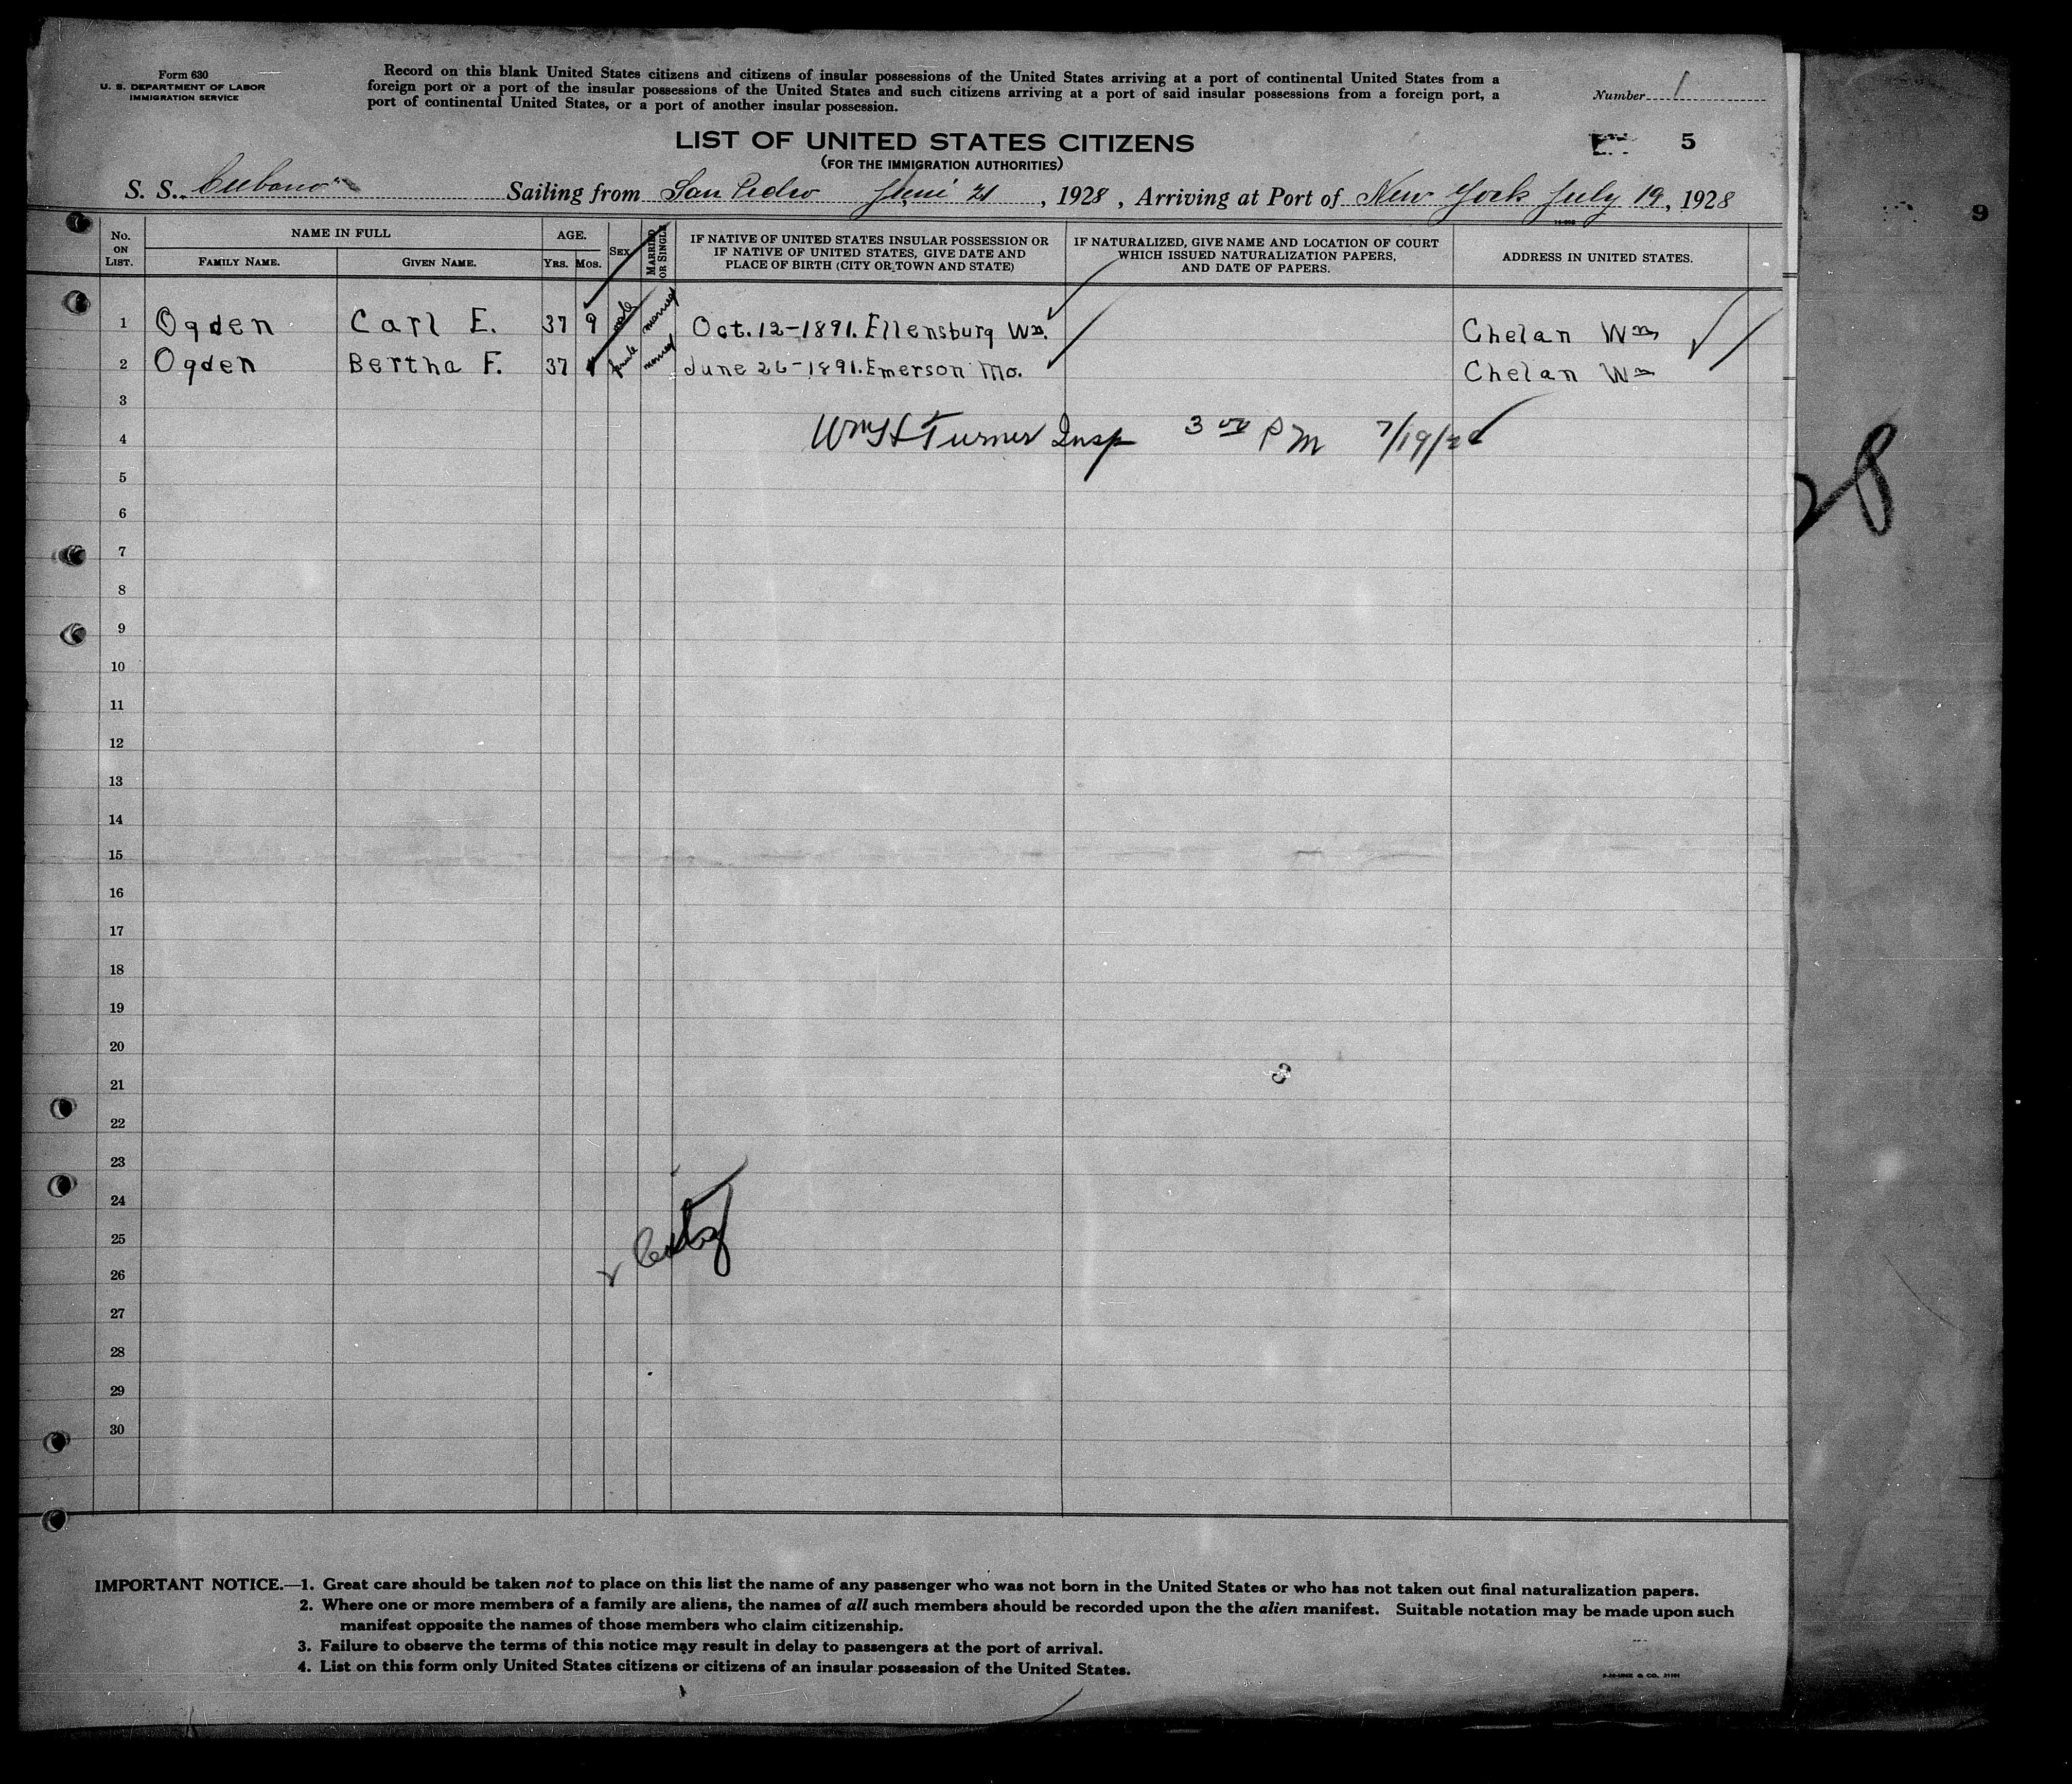 Form 630
U. S. DEPARTMENT OF LABOR
IMMIGRATION SERVICE
Record on this blank United States citizens and citizens of insular possessions of the United States arriving at a port of continental United States from a
foreign port or a port of the insular possessions of the United States and such citizens arriving at a port of said insular possessions from a foreign port, a
port of continental United States, or a port of another insular possession.
Number 1
LIST OF UNITED STATES CITIZENS
(FOR THE IMMIGRATION AUTHORITIES)
5
S. S. Cubano Sailing from San Pedro June 21, 1928, Arriving at Port of New York July 19, 1928
9
No. ON LIST.
NAME IN FULL
FAMILY NAME.
GIVEN NAME.
AGE.
YRS. MOS.
SEX
MARRIED OR SINGLE
IF NATIVE OF UNITED STATES INSULAR POSSESSION OR
IF NATIVE OF UNITED STATES, GIVE DATE AND
PLACE OF BIRTH (CITY OR TOWN AND STATE)
IF NATURALIZED, GIVE NAME AND LOCATION OF COURT
WHICH ISSUED NATURALIZATION PAPERS,
AND DATE OF PAPERS.
ADDRESS IN UNITED STATES.
1 Ogden Carl E. 37 9 male married Oct. 12-1891. Ellensburg Wn. Chelan Wn
2 Ogden Bertha F. 37 female married June 26-1891. Emerson Mo. Chelan Wn
3
4 Wm H Turner Insp 3 00 P M 7/19/28
28
5
6
7
8
9
10
11
12
13
14
15
16
17
18
19
20
21
22
23
24
25
26
27
28
29
30
IMPORTANT NOTICE.—1. Great care should be taken not to place on this list the name of any passenger who was not born in the United States or who has not taken out final naturalization papers.
2. Where one or more members of a family are aliens, the names of all such members should be recorded upon the the alien manifest. Suitable notation may be made upon such
manifest opposite the names of those members who claim citizenship.
3. Failure to observe the terms of this notice may result in delay to passengers at the port of arrival.
4. List on this form only United States citizens or citizens of an insular possession of the United States.